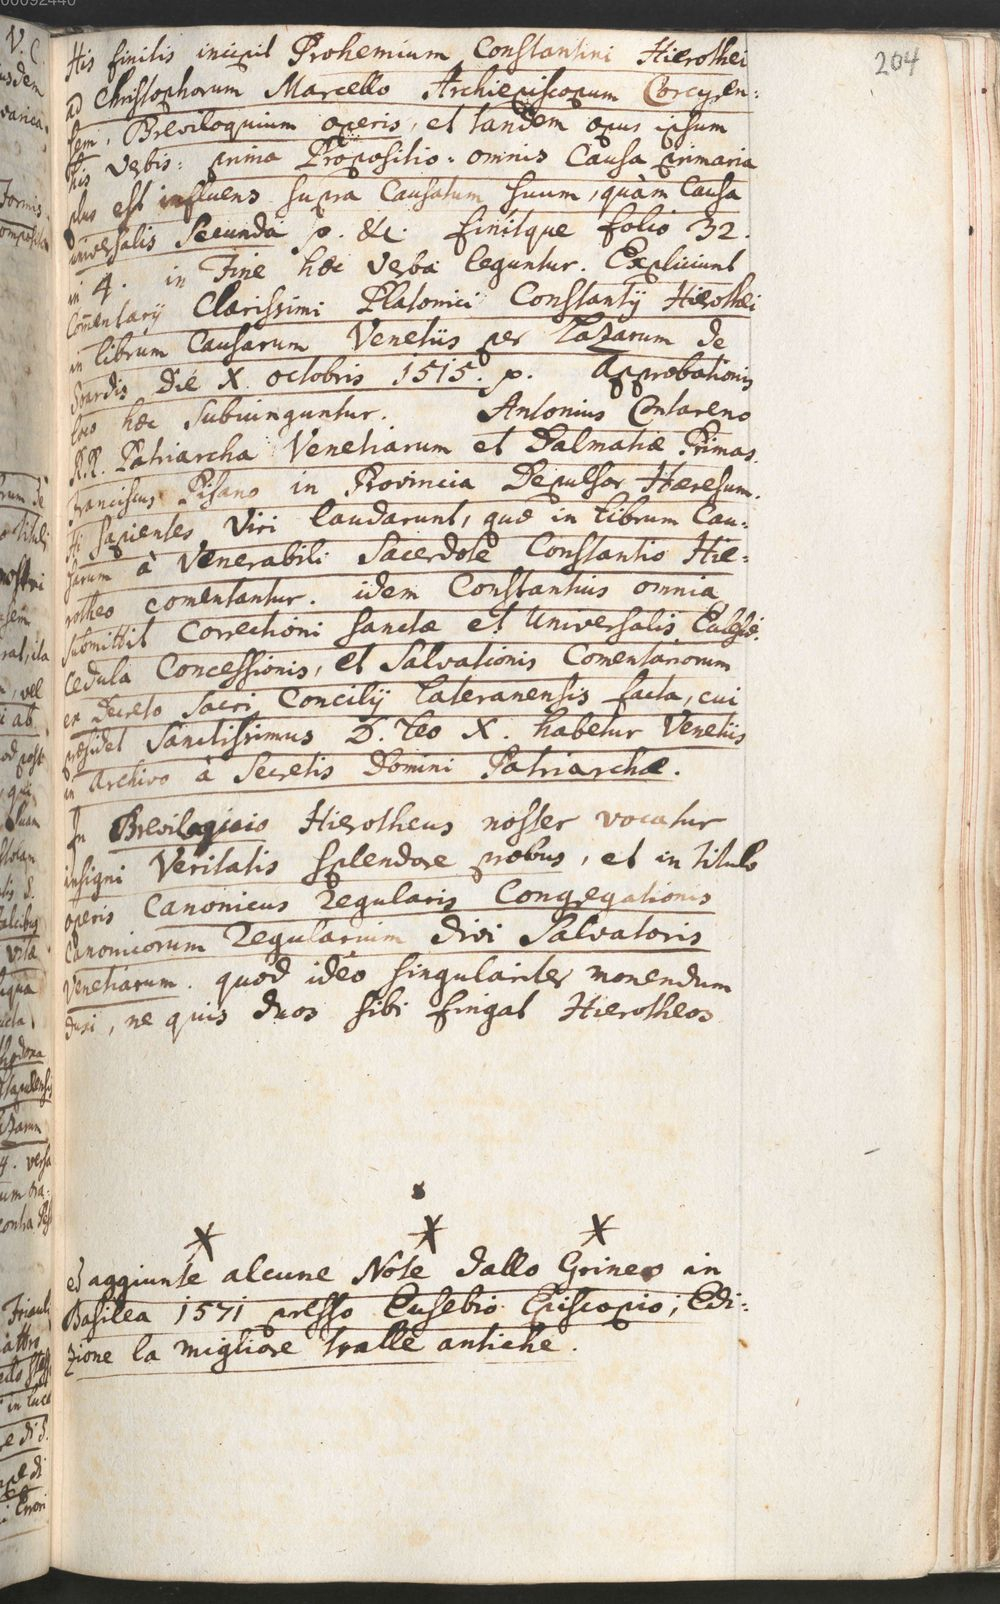 204
His finitis incipit Prohemium Constantini Hierothei
ad Christophorum Marcello Archiepiscopum Corcyren:
sem, Breviloquium operis, et tandem opus ipsum
his verbis: prima Propositio. omnis Causa primaria
plus est influens supra Causatum suum, quàm Causa
universalis Secunda p. &c. finitque folio 32.
in 4. in Fine hæc verba leguntur. Expliciunt
Com̃entarij Clarissimi Platonici Constantij Hierothei
in librum Causarum Venetiis per Lazarum de
Soardis Die X octobris 1515. p. Approbationis
loco hæc subiunguntur. Antonius Contareno
R.P. Patriarcha Venetiarum et Dalmatiæ Primas.
Franciscus Pisano in Provincia Depulsor Hæresum.
Hi sapientes Viri laudarunt, quæ in librum Cau:
sarum à Venerabili Sacerdote Constantio Hie:
rotheo comentantur. idem Constantius omnia
submittit Correctioni Sanctæ et Universalis Eclesiæ.
Cedula Concessionis, et Salvationis Comentariorum
ex Decreto Sacri Concilij Lateranensis facta, cui
præsidet Sanctissimus D. Leo X. habetur Venetiis
in Archivo à Secretis Domini Patriarchæ.
In Breviloquio Hierotheus noster vocatur
insigni Veritatis splendore probus, et in titulo
operis Canonicus Regularis Congregationis
Canonicorum Regularium Divi Salvatoris
Venetiarum. quod ideo singulariter monendum
duxi, ne quis duos sibi fingat Hierotheos
ed aggiunte alcune Note dallo Grineo in
Basilea 1571 presso Eusebio Episcopio; Edi:
zione la migliore tralle antiche.